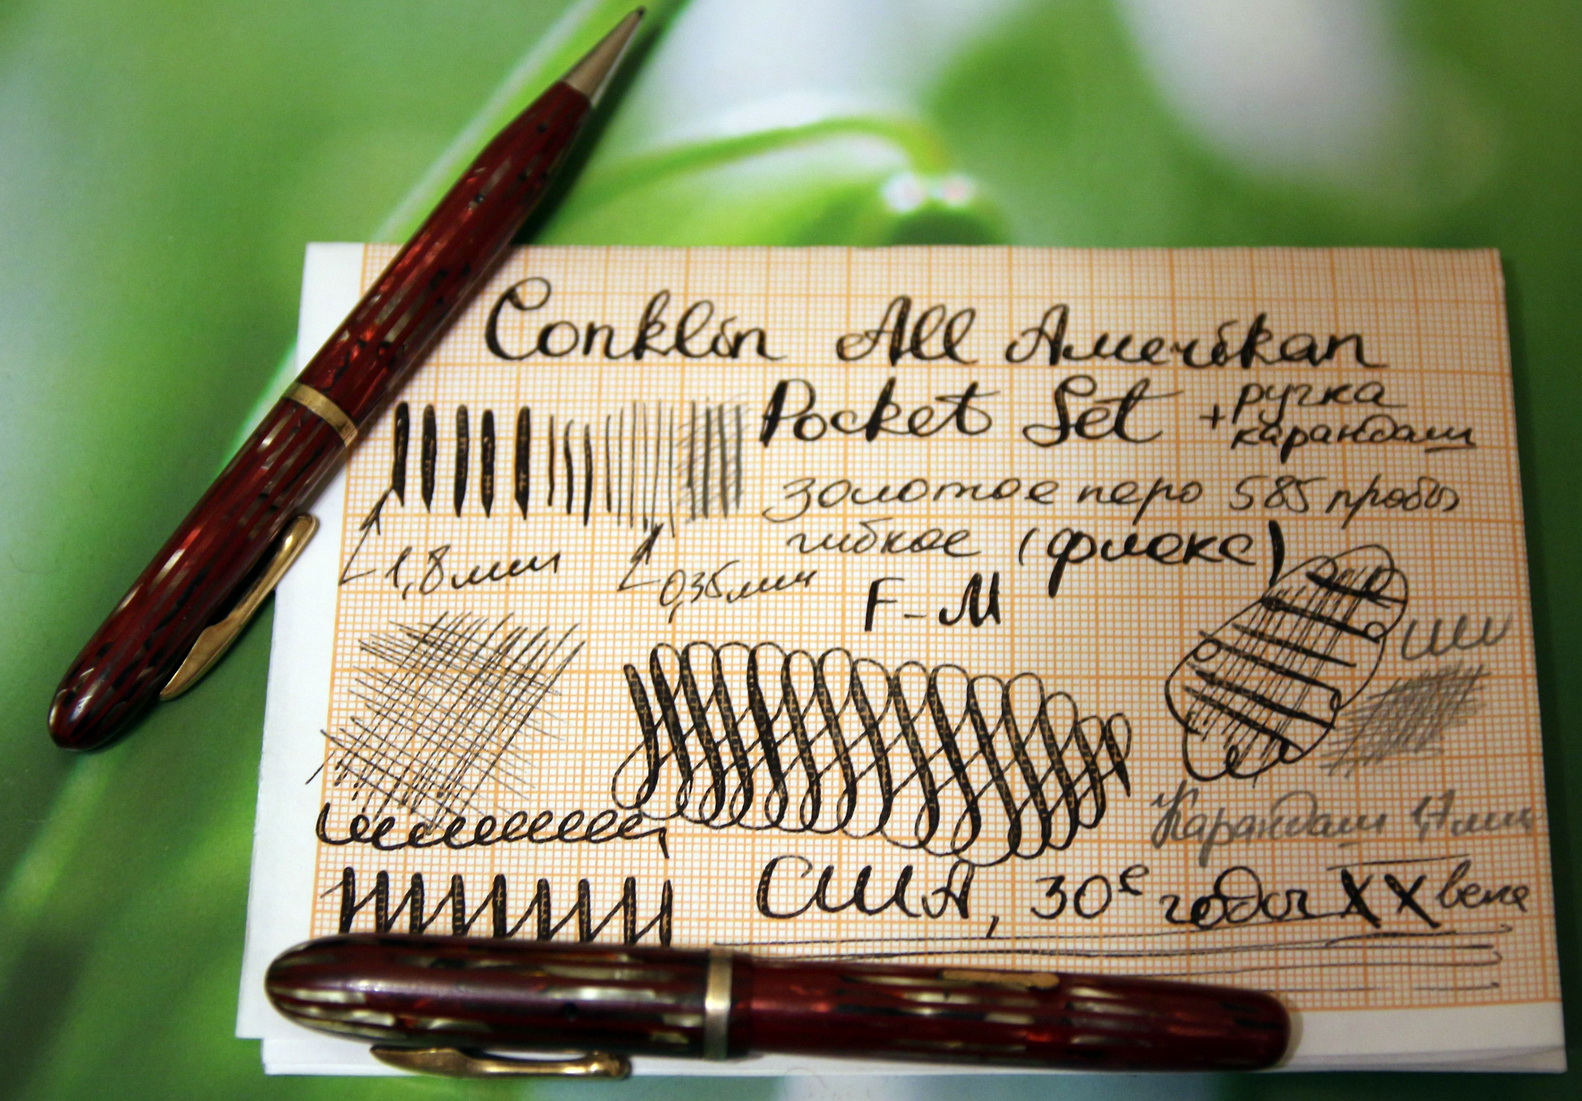 Conklin All Amerikan
Pocket Set + ручка
карандаш
золотое перо 585 пробы
гибкое (флекс)
1,8мм
0,35мм
F-M
Карандаш 1,1мм
США, 30е годы XX века